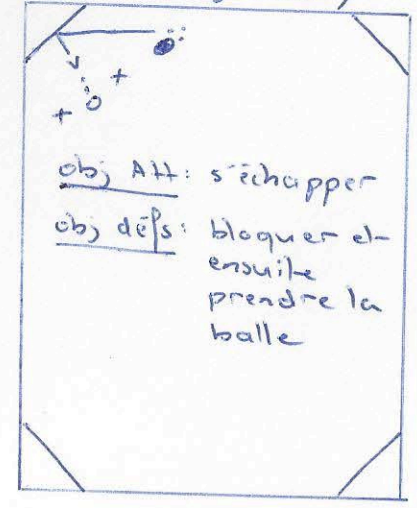 obj Att: s'échapper
obj défs: bloquer et
ensuite
prendre la
balle